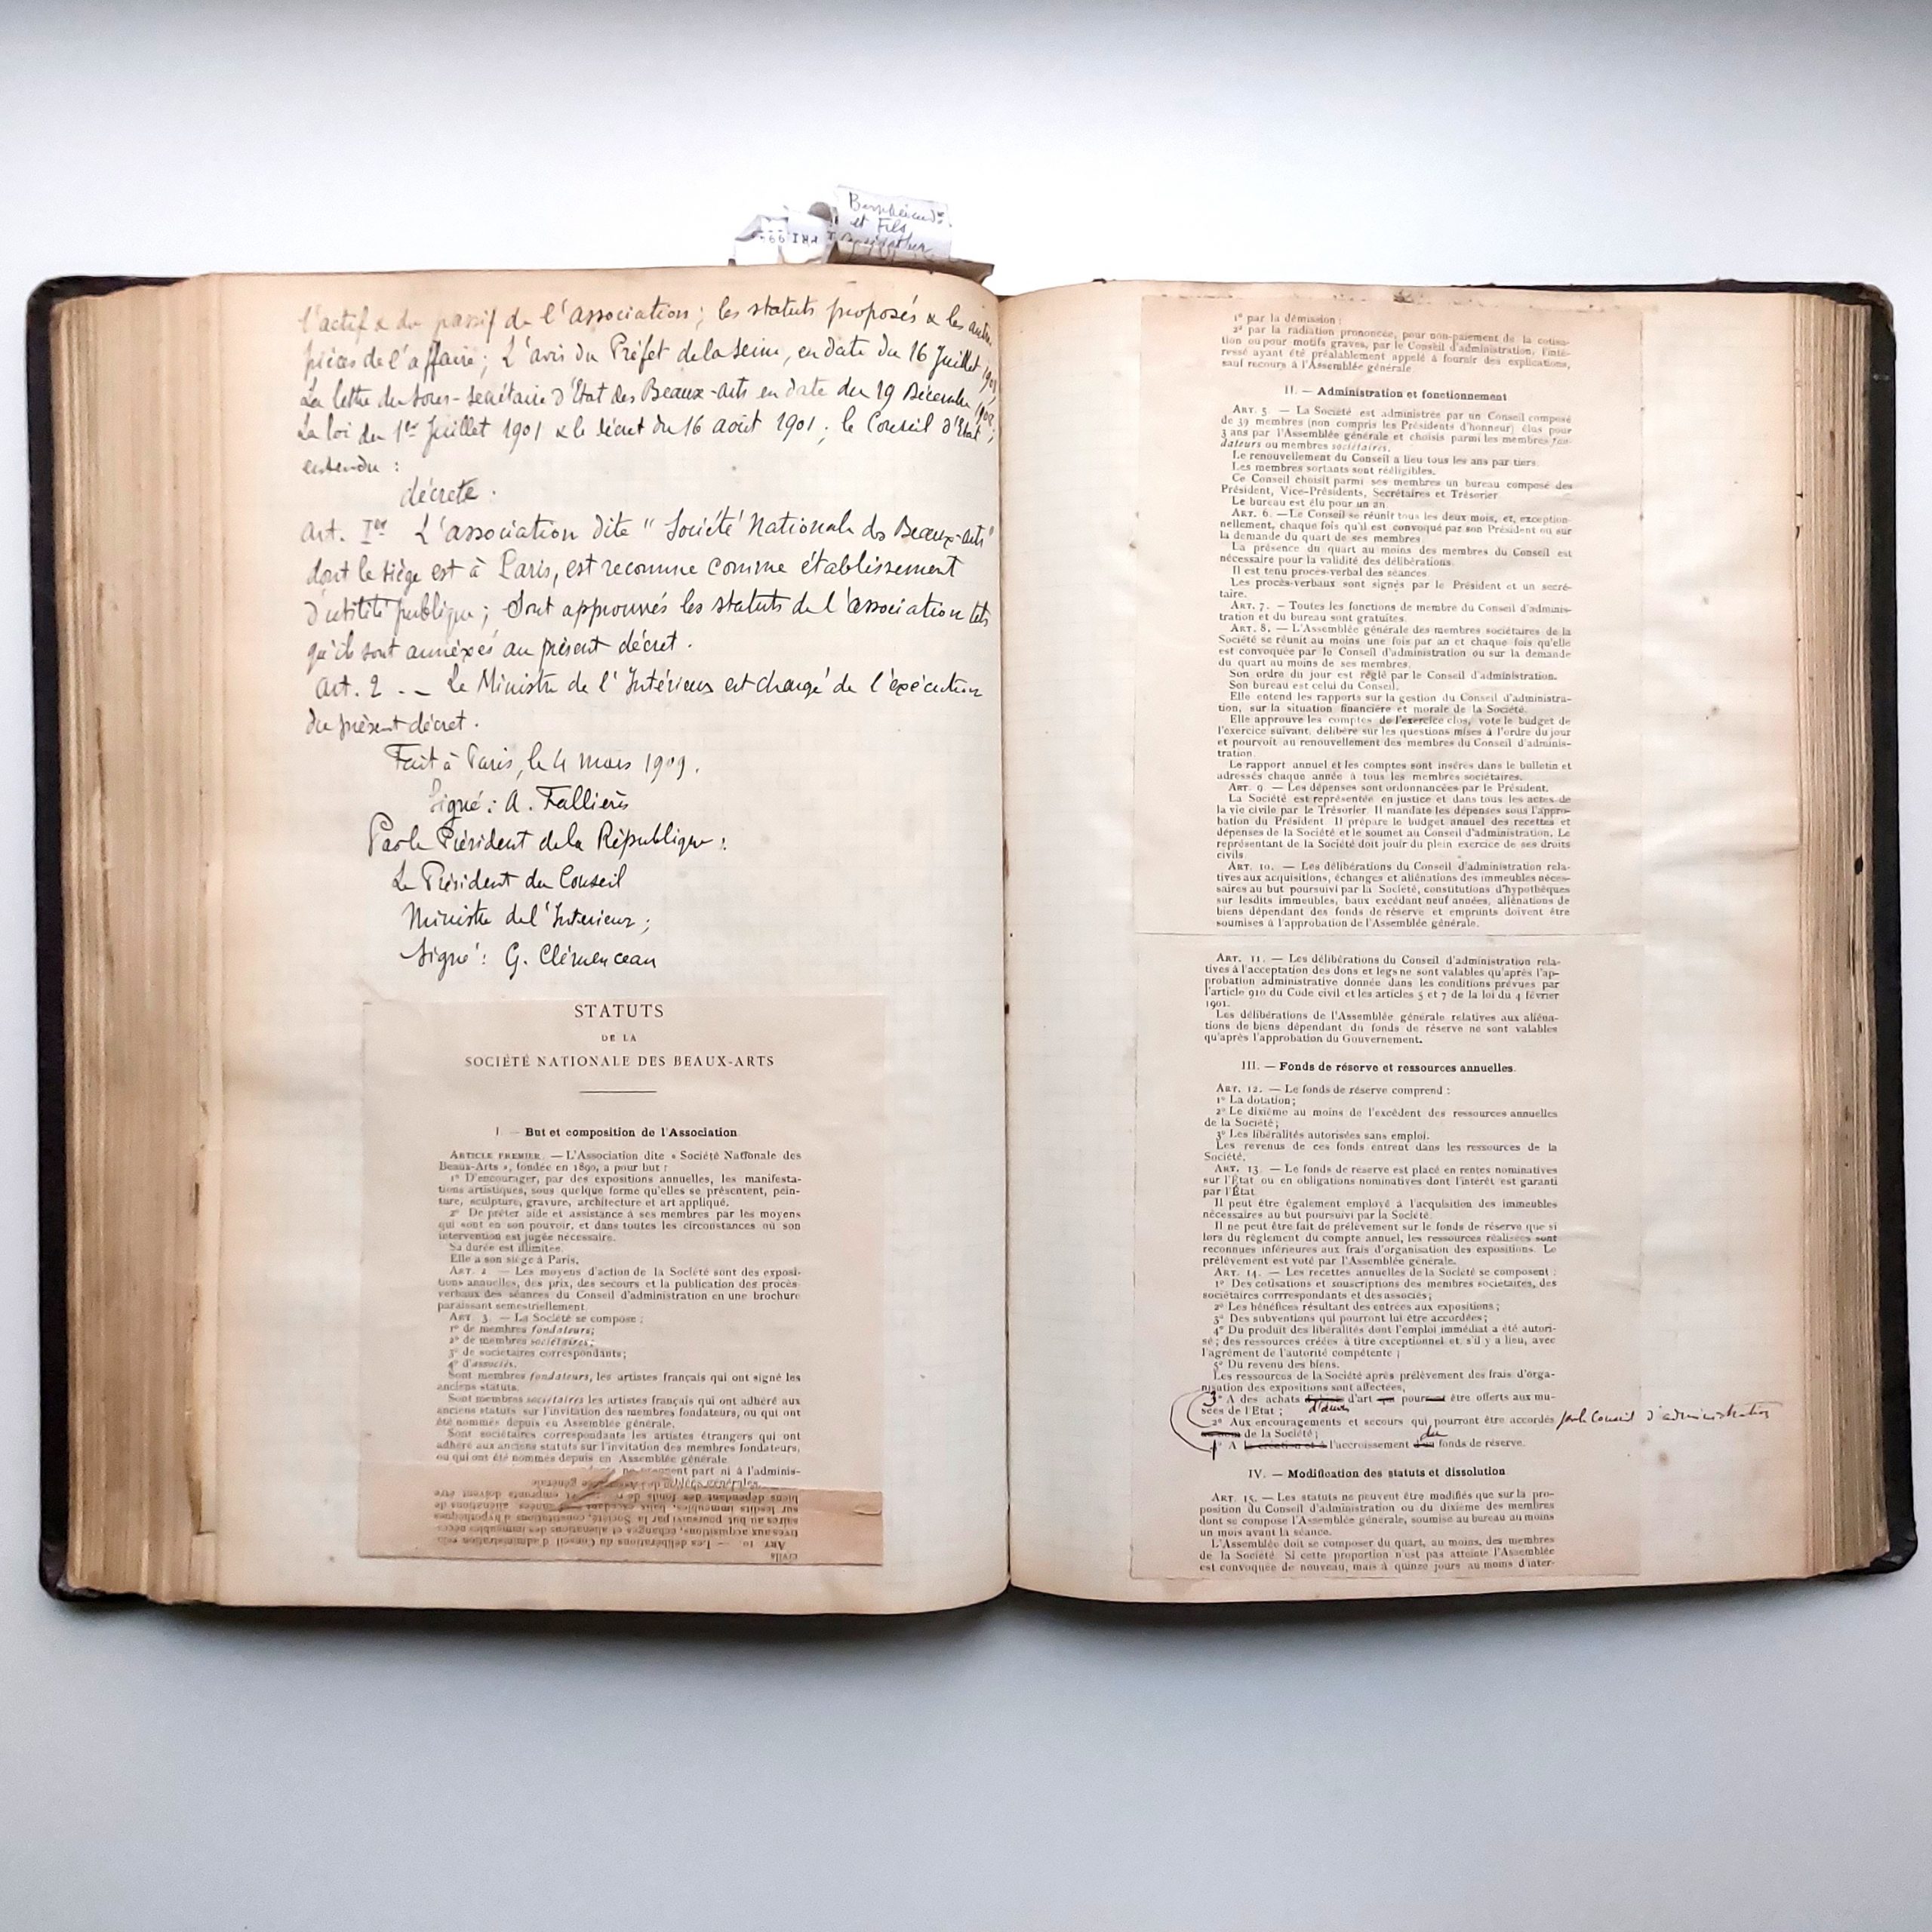 Bernheim
et Fils
l'actif & du passif de l'association; les statuts proposés & les autres
pièces de l'affaire; L'avis du Préfet de la Seine, en date du 16 Juillet
La lettre du Sous-secrétaire d'Etat des Beaux-Arts en date du 19 Décembre
La loi du 1er Juillet 1901 & le décret du 16 août 1901; le Conseil d'Etat
entendu :
décrète :
Art. Ier L'association dite "Société Nationale des Beaux-Arts"
dont le siège est à Paris, est reconnue comme établissement
d'utilité publique; Sont approuvés les statuts de l'association tels
qu'ils sont annexés au présent décret.
Art. 2 . — Le Ministre de l'Intérieur est chargé de l'exécution
du présent décret.
Fait à Paris, le 4 mars 1909.
Signé : A. Fallières
Par le Président de la République :
Le Président du Conseil
Ministre de l'Interieur;
Signé : G. Clémenceau
STATUTS
DE LA
SOCIÉTÉ NATIONALE DES BEAUX-ARTS
I. — But et composition de l'Association
ARTICLE PREMIER. — L'Association dite « Société Nationale des
Beaux-Arts », fondée en 1890, a pour but :
1° D'encourager, par des expositions annuelles, les manifesta-
tions artistiques, sous quelque forme qu'elles se présentent, pein-
ture, sculpture, gravure, architecture et art appliqué.
2° De prêter aide et assistance à ses membres par les moyens
qui sont en son pouvoir, et dans toutes les circonstances où son
intervention est jugée nécessaire.
Sa durée est illimitée.
Elle a son siège à Paris.
ART. 2 — Les moyens d'action de la Société sont des exposi-
tions annuelles, des prix, des secours et la publication des procès
verbaux des séances du Conseil d'administration en une brochure
paraissant semestriellement.
ART. 3. — La Société se compose :
1° de membres fondateurs;
2° de membres sociétaires;
3° de sociétaires correspondants;
4° d'associés.
Sont membres fondateurs, les artistes français qui ont signé les
anciens statuts.
Sont membres sociétaires les artistes français qui ont adhéré aux
anciens statuts sur l'invitation des membres fondateurs, ou qui ont
été nommés depuis en Assemblée générale.
Sont sociétaires correspondants les artistes étrangers qui ont
adhéré aux anciens statuts sur l'invitation des membres fondateurs,
ou qui ont été nommés depuis en Assemblée générale.
ne prennent part ni à l'adminis-
civils
ART. 10. — Les délibérations du Conseil d'administration rela-
tives aux acquisitions, échanges et aliénations des immeubles néces-
saires au but poursuivi par la Société, constitutions d'hypothèques
sur lesdits immeubles, baux excédant années, aliénations de
biens dépendant des fonds de et emprunts doivent être
générale
1° par la démission;
2° par la radiation prononcée, pour non-paiement de la cotisa-
tion ou pour motifs graves, par le Conseil d'administration, l'inté-
ressé ayant été préalablement appelé à fournir des explications,
sauf recours à l'Assemblée générale.
II. — Administration et fonctionnement
ART. 5. — La Société est administrée par un Conseil composé
de 39 membres (non compris les Présidents d'honneur) élus pour
3 ans par l'Assemblée générale et choisis parmi les membres fon-
dateurs ou membres sociétaires.
Le renouvellement du Conseil a lieu tous les ans par tiers.
Les membres sortants sont rééligibles.
Ce Conseil choisit parmi ses membres un bureau composé des
Président, Vice-Présidents, Secrétaires et Trésorier
Le bureau est élu pour un an.
ART. 6. — Le Conseil se réunit tous les deux mois, et, exception-
nellement, chaque fois qu'il est convoqué par son Président ou sur
la demande du quart de ses membres.
La présence du quart au moins des membres du Conseil est
nécessaire pour la validité des délibérations.
Il est tenu procès-verbal des séances.
Les procès-verbaux sont signés par le Président et un secré-
taire.
ART. 7. — Toutes les fonctions de membre du Conseil d'adminis-
tration et du bureau sont gratuites.
ART. 8. — L'Assemblée générale des membres sociétaires de la
Société se réunit au moins une fois par an et chaque fois qu'elle
est convoquée par le Conseil d'administration ou sur la demande
du quart au moins de ses membres.
Son ordre du jour est réglé par le Conseil d'administration.
Son bureau est celui du Conseil.
Elle entend les rapports sur la gestion du Conseil d'administra-
tion, sur la situation financière et morale de la Société.
Elle approuve les comptes de l'exercice clos, vote le budget de
l'exercice suivant, délibère sur les questions mises à l'ordre du jour
et pourvoit au renouvellement des membres du Conseil d'adminis-
tration.
Le rapport annuel et les comptes sont insérés dans le bulletin et
adressés chaque année à tous les membres sociétaires.
ART. 9 — Les dépenses sont ordonnancées par le Président.
La Société est représentée en justice et dans tous les actes de
la vie civile par le Trésorier. Il mandate les dépenses sous l'appro-
bation du Président. Il prépare le budget annuel des recettes et
dépenses de la Société et le soumet au Conseil d'administration. Le
représentant de la Société doit jouir du plein exercice de ses droits
civils
ART. 10. — Les délibérations du Conseil d'administration rela-
tives aux acquisitions, échanges et aliénations des immeubles néces-
saires au but poursuivi par la Société, constitutions d'hypothèques
sur lesdits immeubles, baux excédant neuf années, aliénations de
biens dépendant des fonds de réserve et emprunts doivent être
soumises à l'approbation de l'Assemblée générale.
ART. 11. — Les délibérations du Conseil d'administration rela-
tives à l'acceptation des dons et legs ne sont valables qu'après l'ap-
probation administrative donnée dans les conditions prévues par
l'article 910 du Code civil et les articles 5 et 7 de la loi du 4 février
1901.
Les délibérations de l'Assemblée générale relatives aux aliéna-
tions de biens dépendant du fonds de réserve ne sont valables
qu'après l'approbation du Gouvernement.
III. — Fonds de réserve et ressources annuelles.
ART. 12. — Le fonds de réserve comprend :
1° La dotation;
2° Le dixième au moins de l'excédent des ressources annuelles
de la Société;
3° Les libéralités autorisées sans emploi.
Les revenus de ces fonds entrent dans les ressources de la
Société.
ART. 13. — Le fonds de réserve est placé en rentes nominatives
sur l'État ou en obligations nominatives dont l'intérêt est garanti
par l'État.
Il peut être également employé à l'acquisition des immeubles
nécessaires au but poursuivi par la Société.
Il ne peut être fait de prélèvement sur le fonds de réserve que si
lors du règlement du compte annuel, les ressources réalisées sont
reconnues inférieures aux frais d'organisation des expositions. Le
prélèvement est voté par l'Assemblée générale.
ART. 14. — Les recettes annuelles de la Société se composent :
1° Des cotisations et souscriptions des membres sociétaires, des
sociétaires corrrespondants et des associés;
2° Les bénéfices résultant des entrées aux expositions;
3° Des subventions qui pourront lui être accordées;
4° Du produit des libéralités dont l'emploi immédiat a été autori-
sé; des ressources créées à titre exceptionnel et, s'il y a lieu, avec
l'agrément de l'autorité compétente;
5° Du revenu des biens.
Les ressources de la Société après prélèvement des frais d'orga-
nisation des expositions sont affectées,
3° A des achats d'art pour être offerts aux mu-
sées de l'Etat; d'œuvres
2° Aux encouragements et secours qui pourront être accordés par le Conseil d'administration
de la Société;
1° A l'accroissement du fonds de réserve.
IV. — Modification des statuts et dissolution
ART. 15. — Les statuts ne peuvent être modifiés que sur la pro-
position du Conseil d'administration ou du dixième des membres
dont se compose l'Assemblée générale, soumise au bureau au moins
un mois avant la séance.
L'Assemblée doit se composer du quart, au moins, des membres
de la Société. Si cette proportion n'est pas atteinte l'Assemblée
est convoquée de nouveau, mais à quinze jours au moins d'inter-